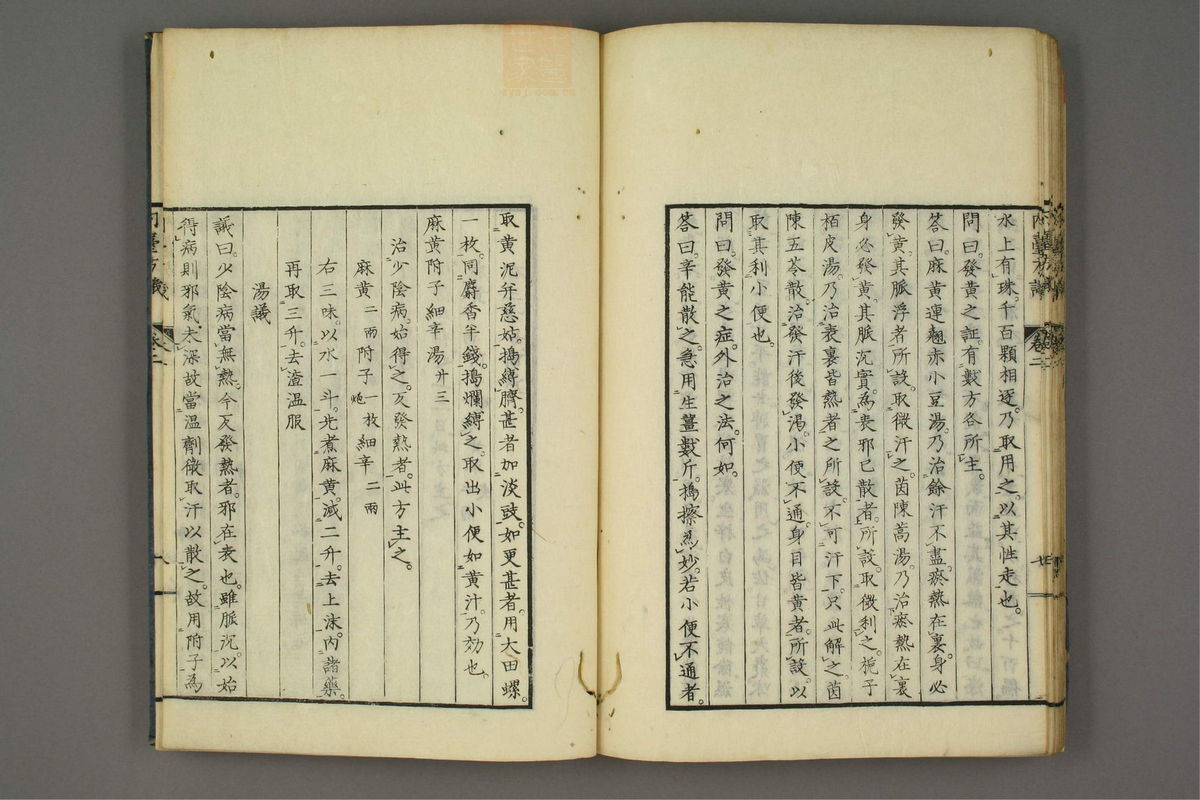 水上有珠千百顆相逐乃取用之以其性走也
問曰發黃之証有數方各所主
答曰麻黃連翹赤小豆湯乃治餘汗不盡瘀熱在裏身必
發黃其脈浮者所設取微汗之茵陳蒿湯乃治瘀熱在裏
身必發黃其脈沉實為表邪已散者所設取微利之梔子
栢皮湯乃治表裏皆熱者之所設不可汗下只此解之茵
陳五苓散治發汗後發渴小便不通身目皆黃者所設以
取其利小便也
問曰發黃之症外治之法何如
答曰辛能散之急用生薑數斤搗擦為妙若小便不通者
取黃泥并慈姑搗縛臍甚者加淡豉如更甚者用大田螺
一枚同麝香半錢搗爛縛之取出小便如黃汁乃効也
麻黃附子細辛湯廾三
治少陰病始得之反發熱者此方主之
麻黃二兩附子一枚炮細辛二兩
右三味以水一斗先煮麻黃減二升去上沫內諸藥
再取三升去渣溫服
湯議
議曰少陰病當無熱今反發熱者邪在表也雖脈沉以始
得病則邪氣未深故當溫劑微取汗以散之故用附子為